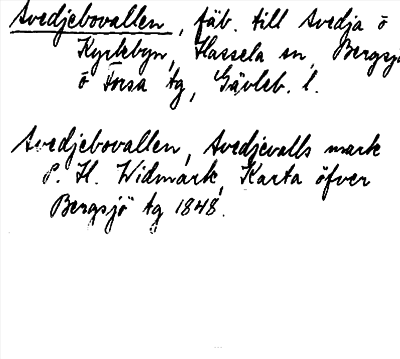 Avedjebovallen, fäb. till Avedja o
Kyrkebyn, Hassela sn, Bergsjö
o Forsa tg, Gävleb. l.
Avedjebovallen, Avedjevalls mark
P. H. Widmark, Karta öfver
Bergsjö tg 1848.